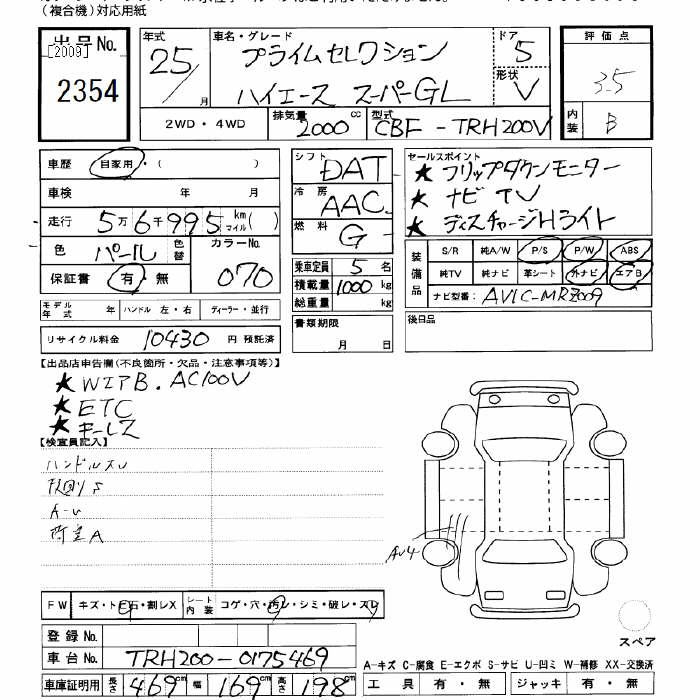 （複合機）対応用紙
出品No.
[2009]
2354
年式 車名・グレード ドア 評価点
25/月 プライムセレクション 5 3.5
ハイエース スーパーGL 形状 V
2WD・4WD 排気量 2000cc 型式 CBF-TRH200V 内装 B
車歴 自家用・( )
車検 年 月
走行 5万6千995km マイル( )
色 パール 色替 カラーNo. 070
保証書 有・無
モデル年式 年 ハンドル 左・右 ディーラー・並行
リサイクル料金 10430 円 預託済
シフト DAT
冷房 AAC
燃料 G
乗車定員 5名
積載量 1000kg
総重量 kg
書類期限
月 日
セールスポイント
★フリップダウンモニター
★ナビTV
★ディスチャージHライト
装備品 S/R 純A/W P/S P/W ABS
純TV 純ナビ 革シート 外ナビ エアB
ナビ型番: AVIC-MRZ009
後日品
【出品店申告欄(不良箇所・欠品・注意事項等)】
★WエアB. AC100V
★ETC
★キーレス
【検査員記入】
ハンドルスレ
A-U
AU4
FW キズ・トビ石・割レX シート内装 コゲ・穴・汚レ・シミ・破レ・スレ
登録No.
車台No. TRH200-0175469
車庫証明用 長さ 469cm 幅 169cm 高さ 198cm
スペア
A-キズ C-腐食 E-エクボ S-サビ U-凹ミ W-補修 XX-交換済
工具 有・無 ジャッキ 有・無